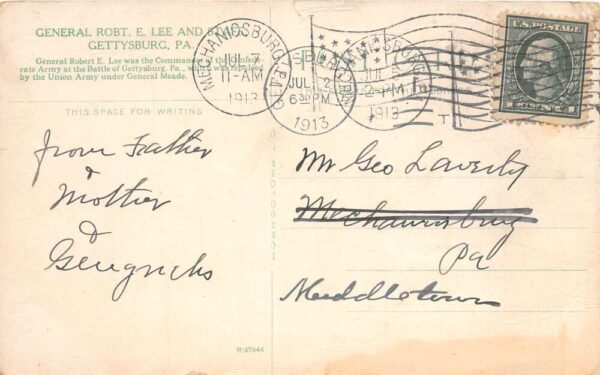 GENERAL ROBT. E. LEE AND
GETTYSBURG, PA.
General Robert E. Lee was the Commander of the Confede-
rate Army at the Battle of Gettysburg, Pa., which was
by the Union Army under General Meade.
THIS SPACE FOR WRITING
from Father
&
Mother
&
MECHANICSBURG, PA.
JUL 7
11-AM
1913
JUL 2
6 30 PM
1913
2-PM
1913
U.S. POSTAGE
Mr Geo Laverty
Mechanicsburg
Pa
Middletown
R-37644